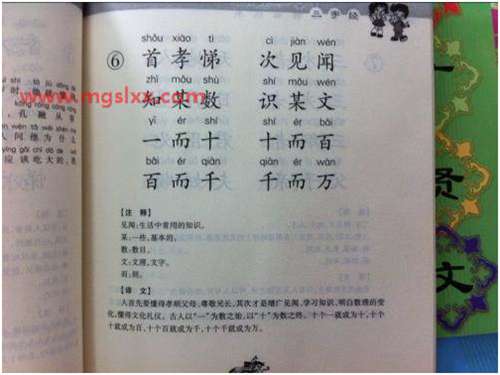 三字经
shǒu xiào tì cì jiàn wén
⑥ 首孝悌 次见闻
zhī mǒu shù shí mǒu wén
知某数 识某文
yī ér shí shí ér bǎi
一而十 十而百
bǎi ér qiān qiān ér wàn
百而千 千而万
【注 释】
见闻:生活中常用的知识。
某:一些,基本的。
数:数目。
文:文理,文字。
而:则。
【译 文】
人首先要懂得孝顺父母、尊敬兄长,其次才是增广见闻,学习知识,明白数理的变
化,懂得文化礼仪。古人以“一”为数之始,以“十”为数之终。十个一就成为十,十个
十就成为百,十个百就成为千,十个千就成为万。
www.mgslxx.com
孔融从
人问他为什么
应该吃大的,我
贤
文